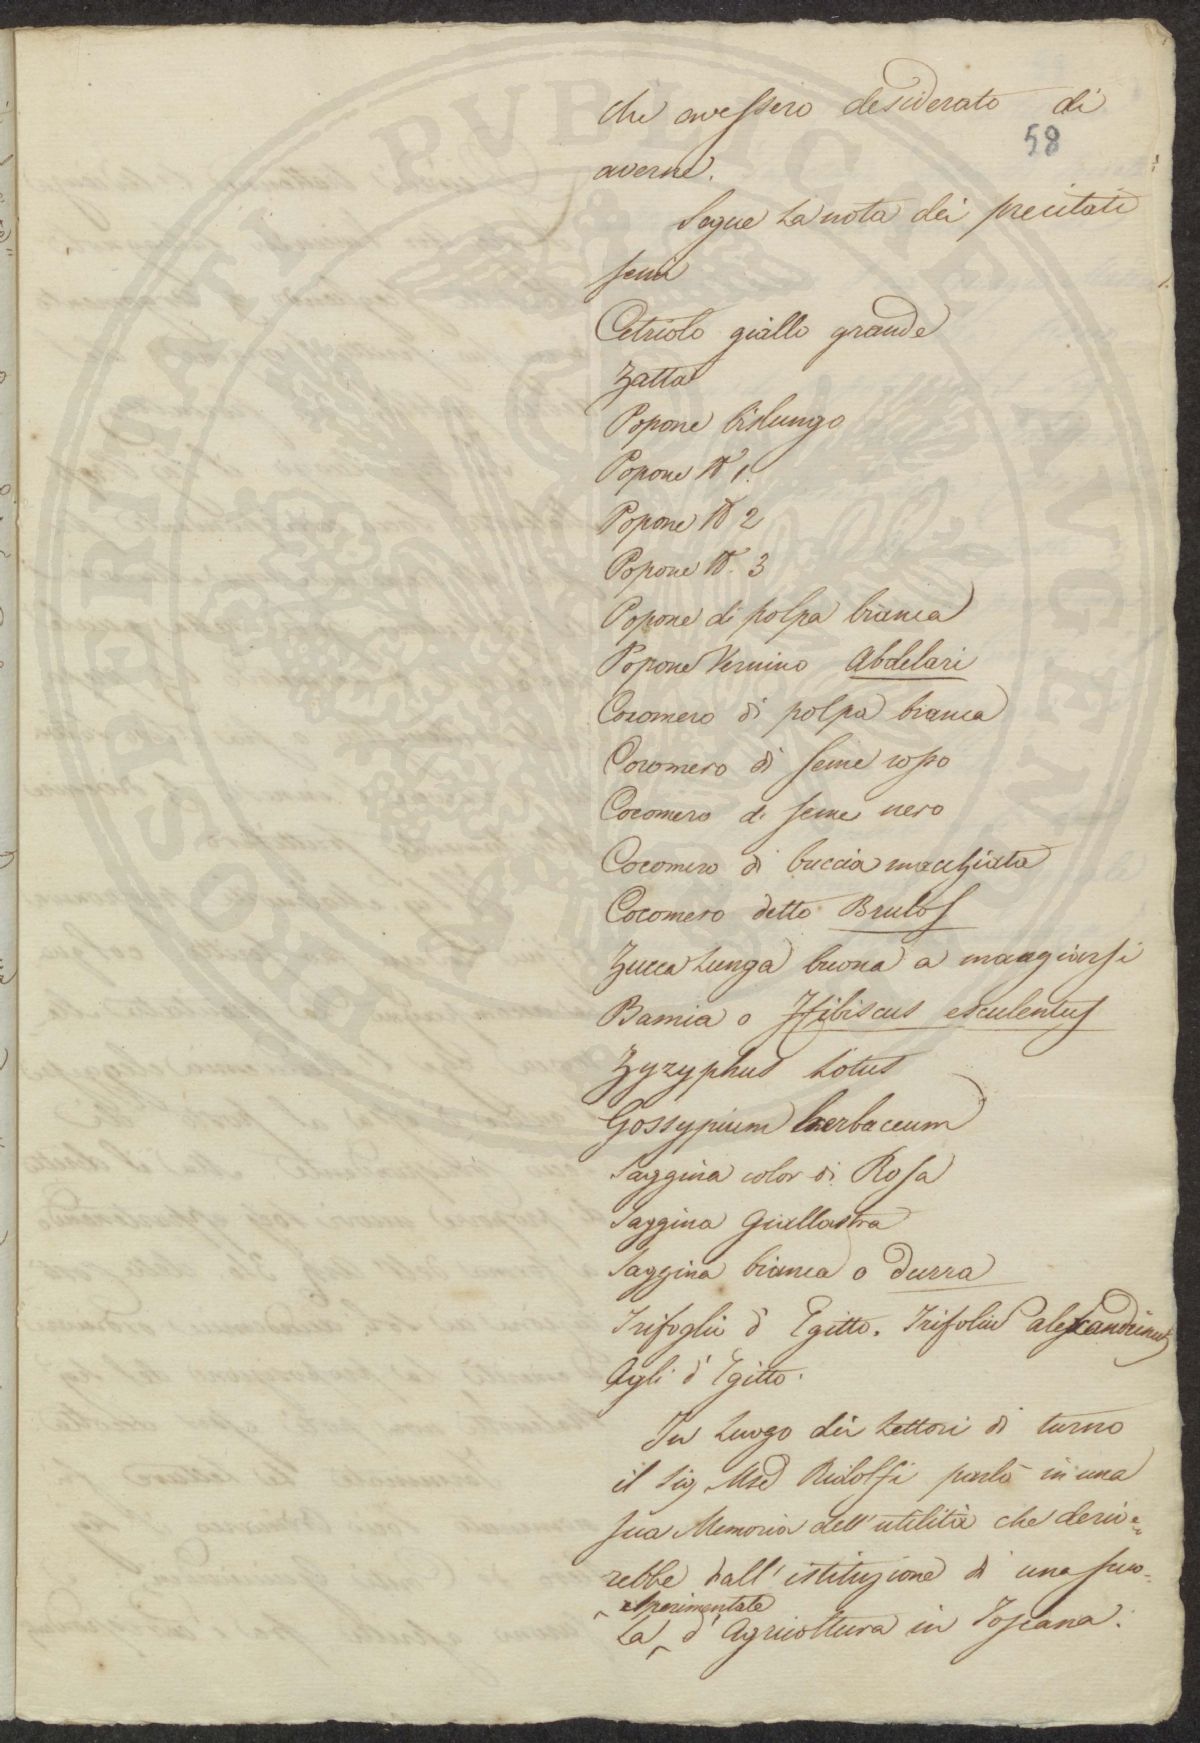 che avessero desiderato di
58
averne.
Segue la nota dei precitati
semi
Cetriolo giallo grande
Zatta
Popone bislungo
Popone N 1.
Popone N 2
Popone N. 3
Popone di polpa bianca
Popone Vernino Abdelari
Cocomero di polpa bianca
Cocomero di seme rosso
Cocomero di seme nero
Cocomero di buccia macchiata
Cocomero detto Brulos
Zucca lunga buona a mangiarsi
Bamia o Hibiscus esculentus
Zyzyphus Lotus
Gossypium herbaceum
Saggina color di Rosa
Saggina Giallastra
Saggina bianca o durra
Trifoglio d'Egitto. Trifoliu alexandrinu
Agli d'Egitto.
In luogo dei Lettori di turno
il Sig. Mse Ridolfi parlò in una
sua Memoria dell'utilità che derive=
rebbe dall'istituzione di una scuo=
esperimentale
la d'Agricoltura in Toscana.